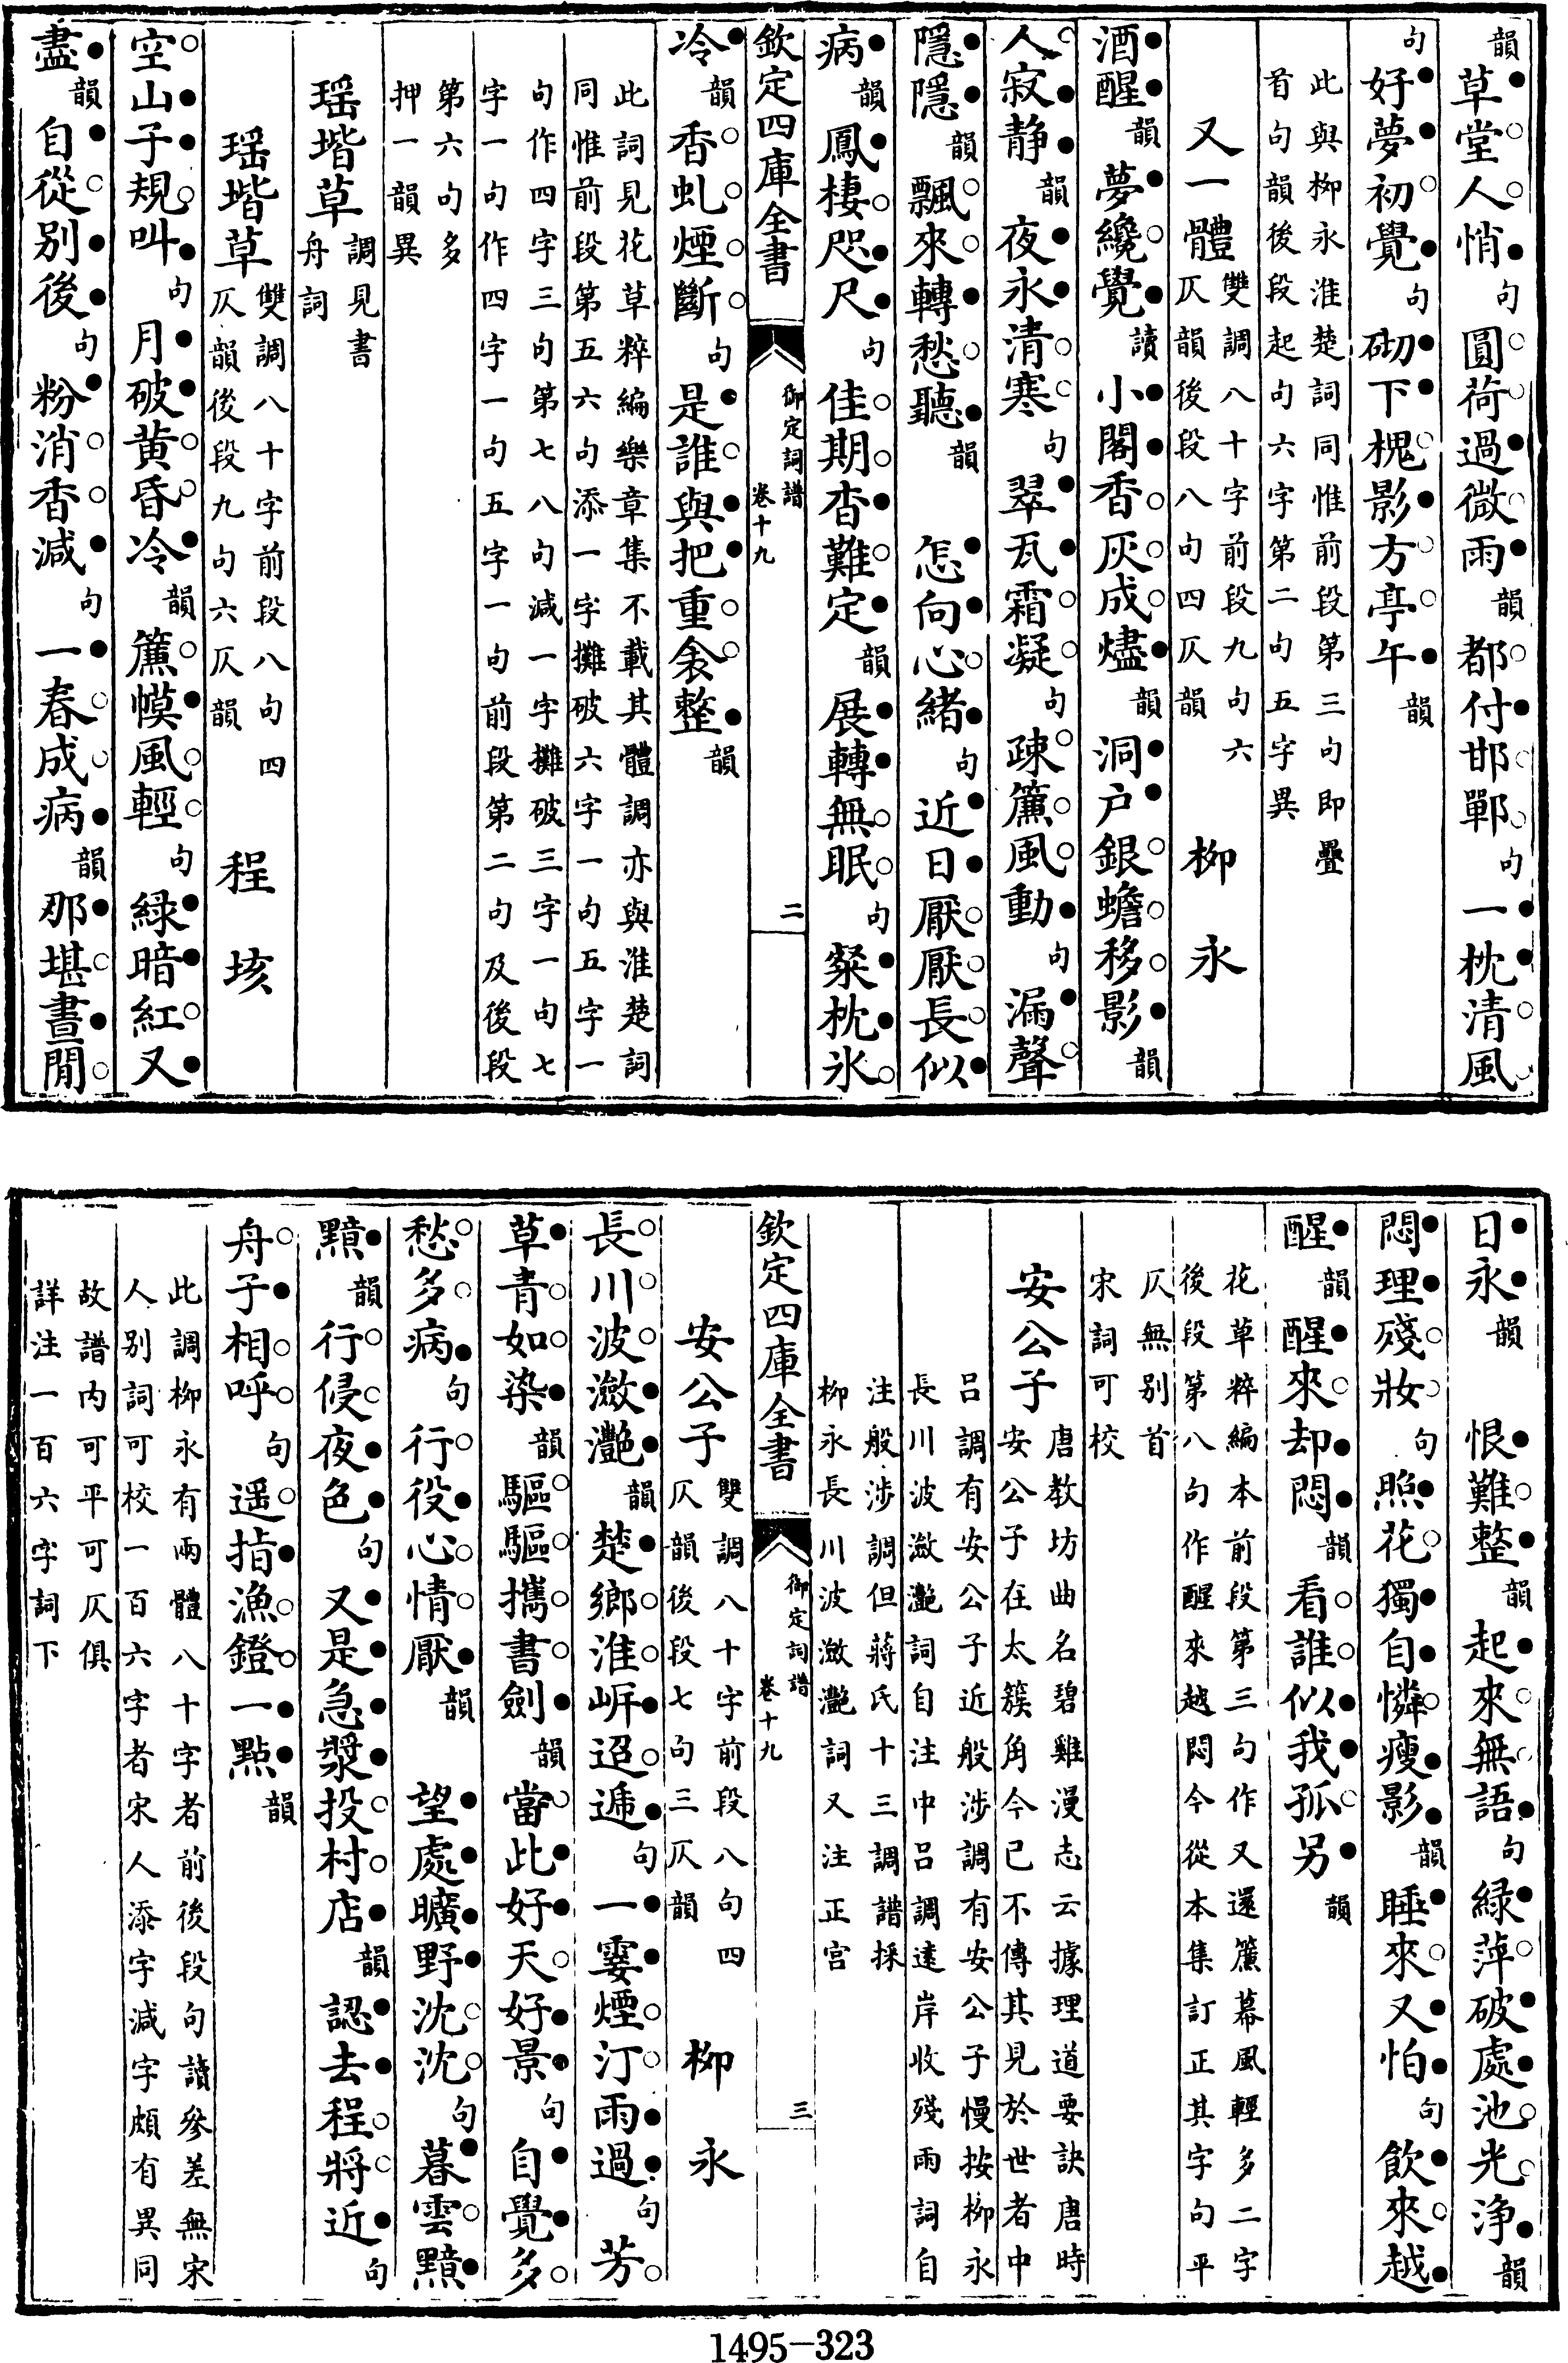 韻草堂人悄句圓荷過微雨韻都付邯鄲句一枕清風
句好夢初覺句砌下槐影方亭午韻
此與柳永淮楚詞同惟前段第三句即疊
首句韻後段起句六字第二句五字異
又一體雙調八十字前段九句六
仄韻後段八句四仄韻
柳永
酒醒韻夢纔覺讀小閣香灰成燼韻洞户銀蟾移影韻
人寂静韻夜永清寒句翠瓦霜凝句疎簾風動句漏聲
隱隱韻飄來轉愁聽韻怎向心緒句近日厭厭長似
病韻鳳棲咫尺句佳期杳難定韻展轉無眠句粲枕氷
欽定四庫全書
御定詞譜
卷十九
二
冷韻香虬煙斷句是誰與把重衾整韻
此詞見花草粹編樂章集不載其體調亦與淮楚詞
同惟前段第五六句添一字攤破六字一句五字一
句作四字三句第七八句減一字攤破三字一句七
字一句作四字一句五字一句前段第二句及後段
第六句多
押一韻異
瑶堦草調見書
舟詞
瑶堦草雙調八十字前段八句四
仄韻後段九句六仄韻
程垓
空山子規叫句月破黄昏冷韻簾幙風輕句緑暗紅又
盡韻自從别後句粉消香減句一春成病韻那堪晝閒
日永韻恨難整韻起來無語句緑萍破處池光浄韻
悶理殘妝句照花獨自憐瘦影韻睡來又怕句飲來越
醒韻醒來却悶韻看誰似我孤另韻
花草粹編本前段第三句作又還簾幕風輕多二字
後段第八句作醒來越悶今從本集訂正其字句平
仄無别首
宋詞可校
安公子唐教坊曲名碧雞漫志云據理道要訣唐時
安公子在太簇角今已不傳其見於世者中
吕調有安公子近般涉調有安公子慢按柳永
長川波瀲灧詞自注中吕調遠岸收殘雨詞自
注般涉調但蔣氏十三調譜採
柳永長川波瀲灧詞又注正宫
欽定四庫全書
御定詞譜
卷十九
三
安公子雙調八十字前段八句四
仄韻後段七句三仄韻
柳永
長川波瀲灧韻楚鄉淮岍迢遞句一霎煙汀雨過句芳
草青如染韻驅驅攜書劍韻當此好天好景句自覺多
愁多病句行役心情厭韻望處曠野沈沈句暮雲黯
黯韻行侵夜色句又是急槳投村店韻認去程將近句
舟子相呼句遥指漁鐙一點韻
此調柳永有兩體八十字者前後段句讀參差無宋
人别詞可校一百六字者宋人添字減字頗有異同
故譜内可平可仄俱
詳注一百六字詞下
1495-323